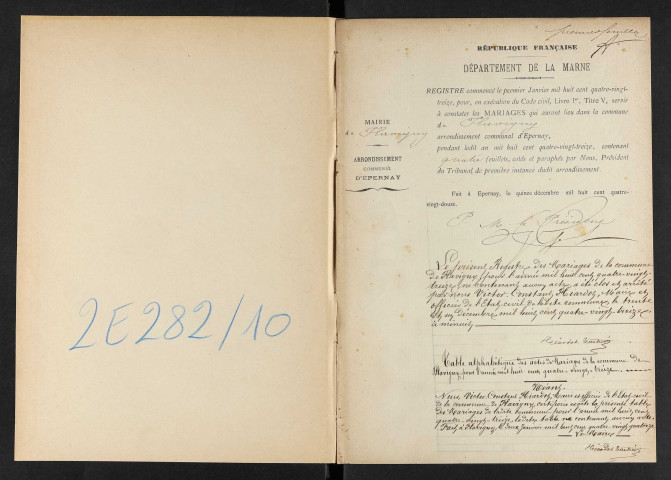 2E282/10
première feuille
RÉPUBLIQUE FRANÇAISE
DÉPARTEMENT DE LA MARNE
MAIRIE
de Flavigny
ARRONDISSEMENT
COMMUNAL
D'ÉPERNAY
REGISTRE commencé le premier Janvier mil huit cent quatre-vingt-
treize, pour, en exécution du Code civil, Livre Ier, Titre V, servir
à constater les MARIAGES qui auront lieu dans la commune
de Flavigny
arrondissement communal d'Épernay,
pendant ledit an mil huit cent quatre-vingt-treize, contenant
quatre feuillets, cotés et paraphés par Nous, Président
du Tribunal de première instance dudit arrondissement.
Fait à Épernay, le quinze décembre mil huit cent quatre-
vingt-douze.
P. M. le Président
Le présent Registre des Mariages de la commune
de Flavigny pour l'année mil huit cent quatre-vingt-
treize, ne contenant aucun acte, a été clos et arrêté
par nous Victor Constant Hiardot, Maire et
officier de l'Etat civil de ladite commune, le trente
et un Décembre mil huit cent quatre-vingt-treize
à minuit
Table alphabétique des actes de Mariage de la commune de
Flavigny, pour l'année mil huit cent quatre-vingt-treize.
Néant
Nous Victor Constant Hiardot, Maire et officier de l'Etat civil
de la commune de Flavigny, certifions exacte la présente table
des Mariages de ladite commune pour l'année mil huit cent
quatre-vingt-treize, ladite table ne contenant aucun acte.
Fait à Flavigny, le deux janvier mil huit cent quatre-vingt-quatorze
Le Maire